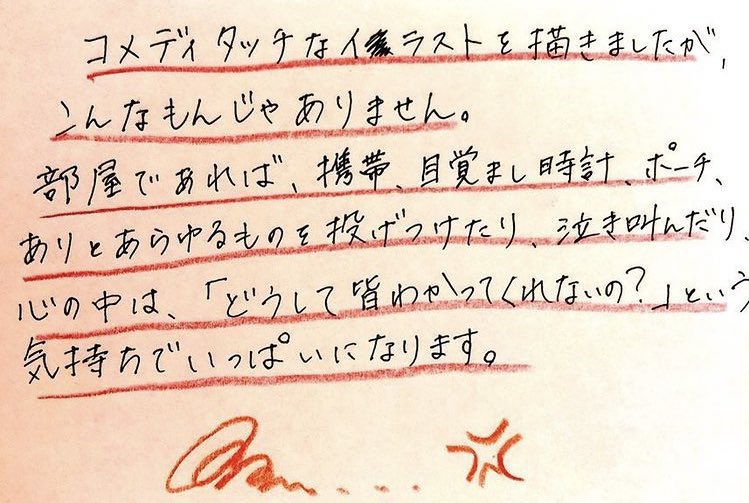 コメディタッチなイラストを描きましたが、
こんなもんじゃありません。
部屋であれば、携帯、目覚まし時計、ポーチ、
ありとあらゆるものを投げつけたり、泣き叫んだり、
心の中は、「どうして皆わかってくれないの?」という
気持ちでいっぱいになります。